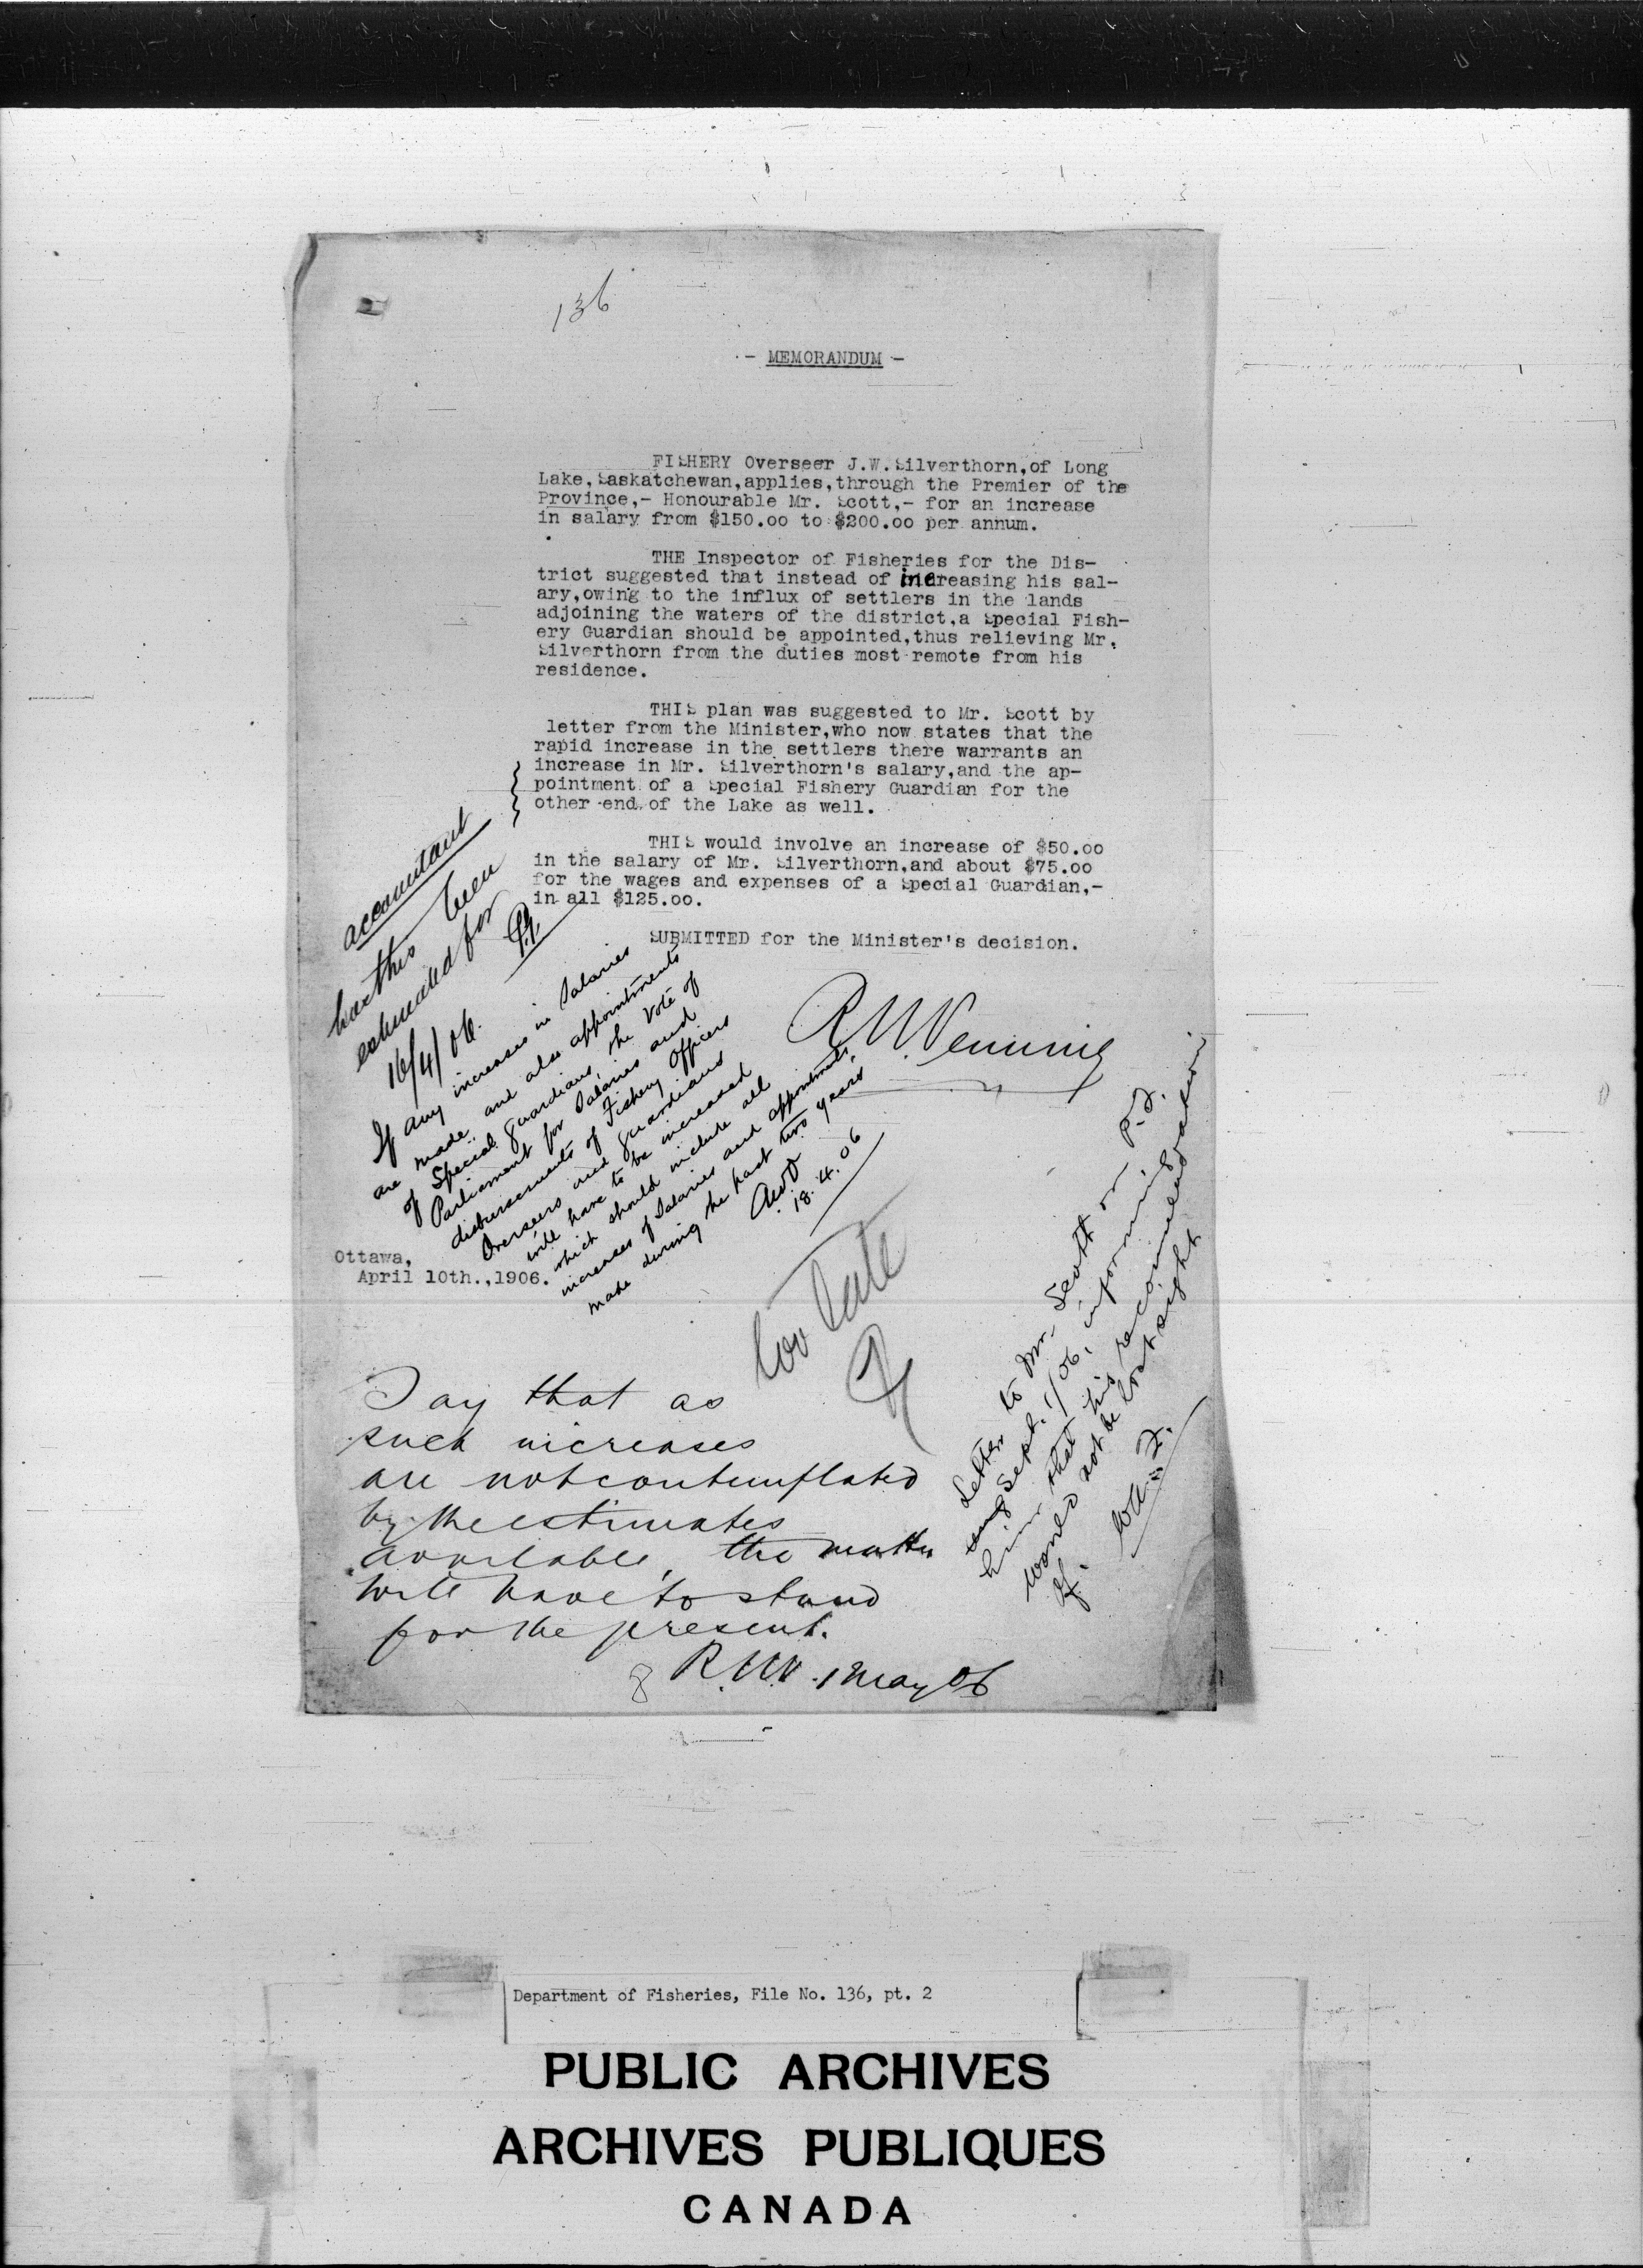 136
- MEMORANDUM -
FISHERY Overseer J.W.Silverthorn,of Long
Lake,Saskatchewan,applies,through the Premier of the
Province,- Honourable Mr. Scott,- for an increase
in salary from $150.00 to $200.00 per annum.
THE Inspector of Fisheries for the Dis-
trict suggested that instead of increasing his sal-
ary,owing to the influx of settlers in the lands
adjoining the waters of the district,a Special Fish-
ery Guardian should be appointed,thus relieving Mr.
Silverthorn from the duties most remote from his
residence.
THIS plan was suggested to Mr. Scott by
letter from the Minister,who now states that the
rapid increase in the settlers there warrants an
increase in Mr. Silverthorn's salary,and the ap-
pointment of a Special Fishery Guardian for the
other end of the Lake as well.
THIS would involve an increase of $50.00
in the salary of Mr. Silverthorn,and about $75.00
for the wages and expenses of a Special Guardian,-
in all $125.00.
SUBMITTED for the Minister's decision.
R N Venning
accountant
has this been
estimated for
16/4/06.
If any increases in Salaries
are made and also appointments
of Special Guardians, the vote of
Parliament for Salaries and
disbursements of Fishery Officers
Overseers and guardians
will have to be increased
which should include all
increases of Salaries and appointments
made during the past two years
18.4.06
Ottawa,
April 10th.,1906.
too late
Say that as
such increases
are not contemplated
by the estimates
available, the matter
will have to stand
for the present.
R.N.V. 1 May 06
Letter to Mr. Scott on
Sept. 1/06, informing
him that his recommendation
would not be lost sight
of.
Department of Fisheries, File No. 136, pt. 2
PUBLIC ARCHIVES
ARCHIVES PUBLIQUES
CANADA